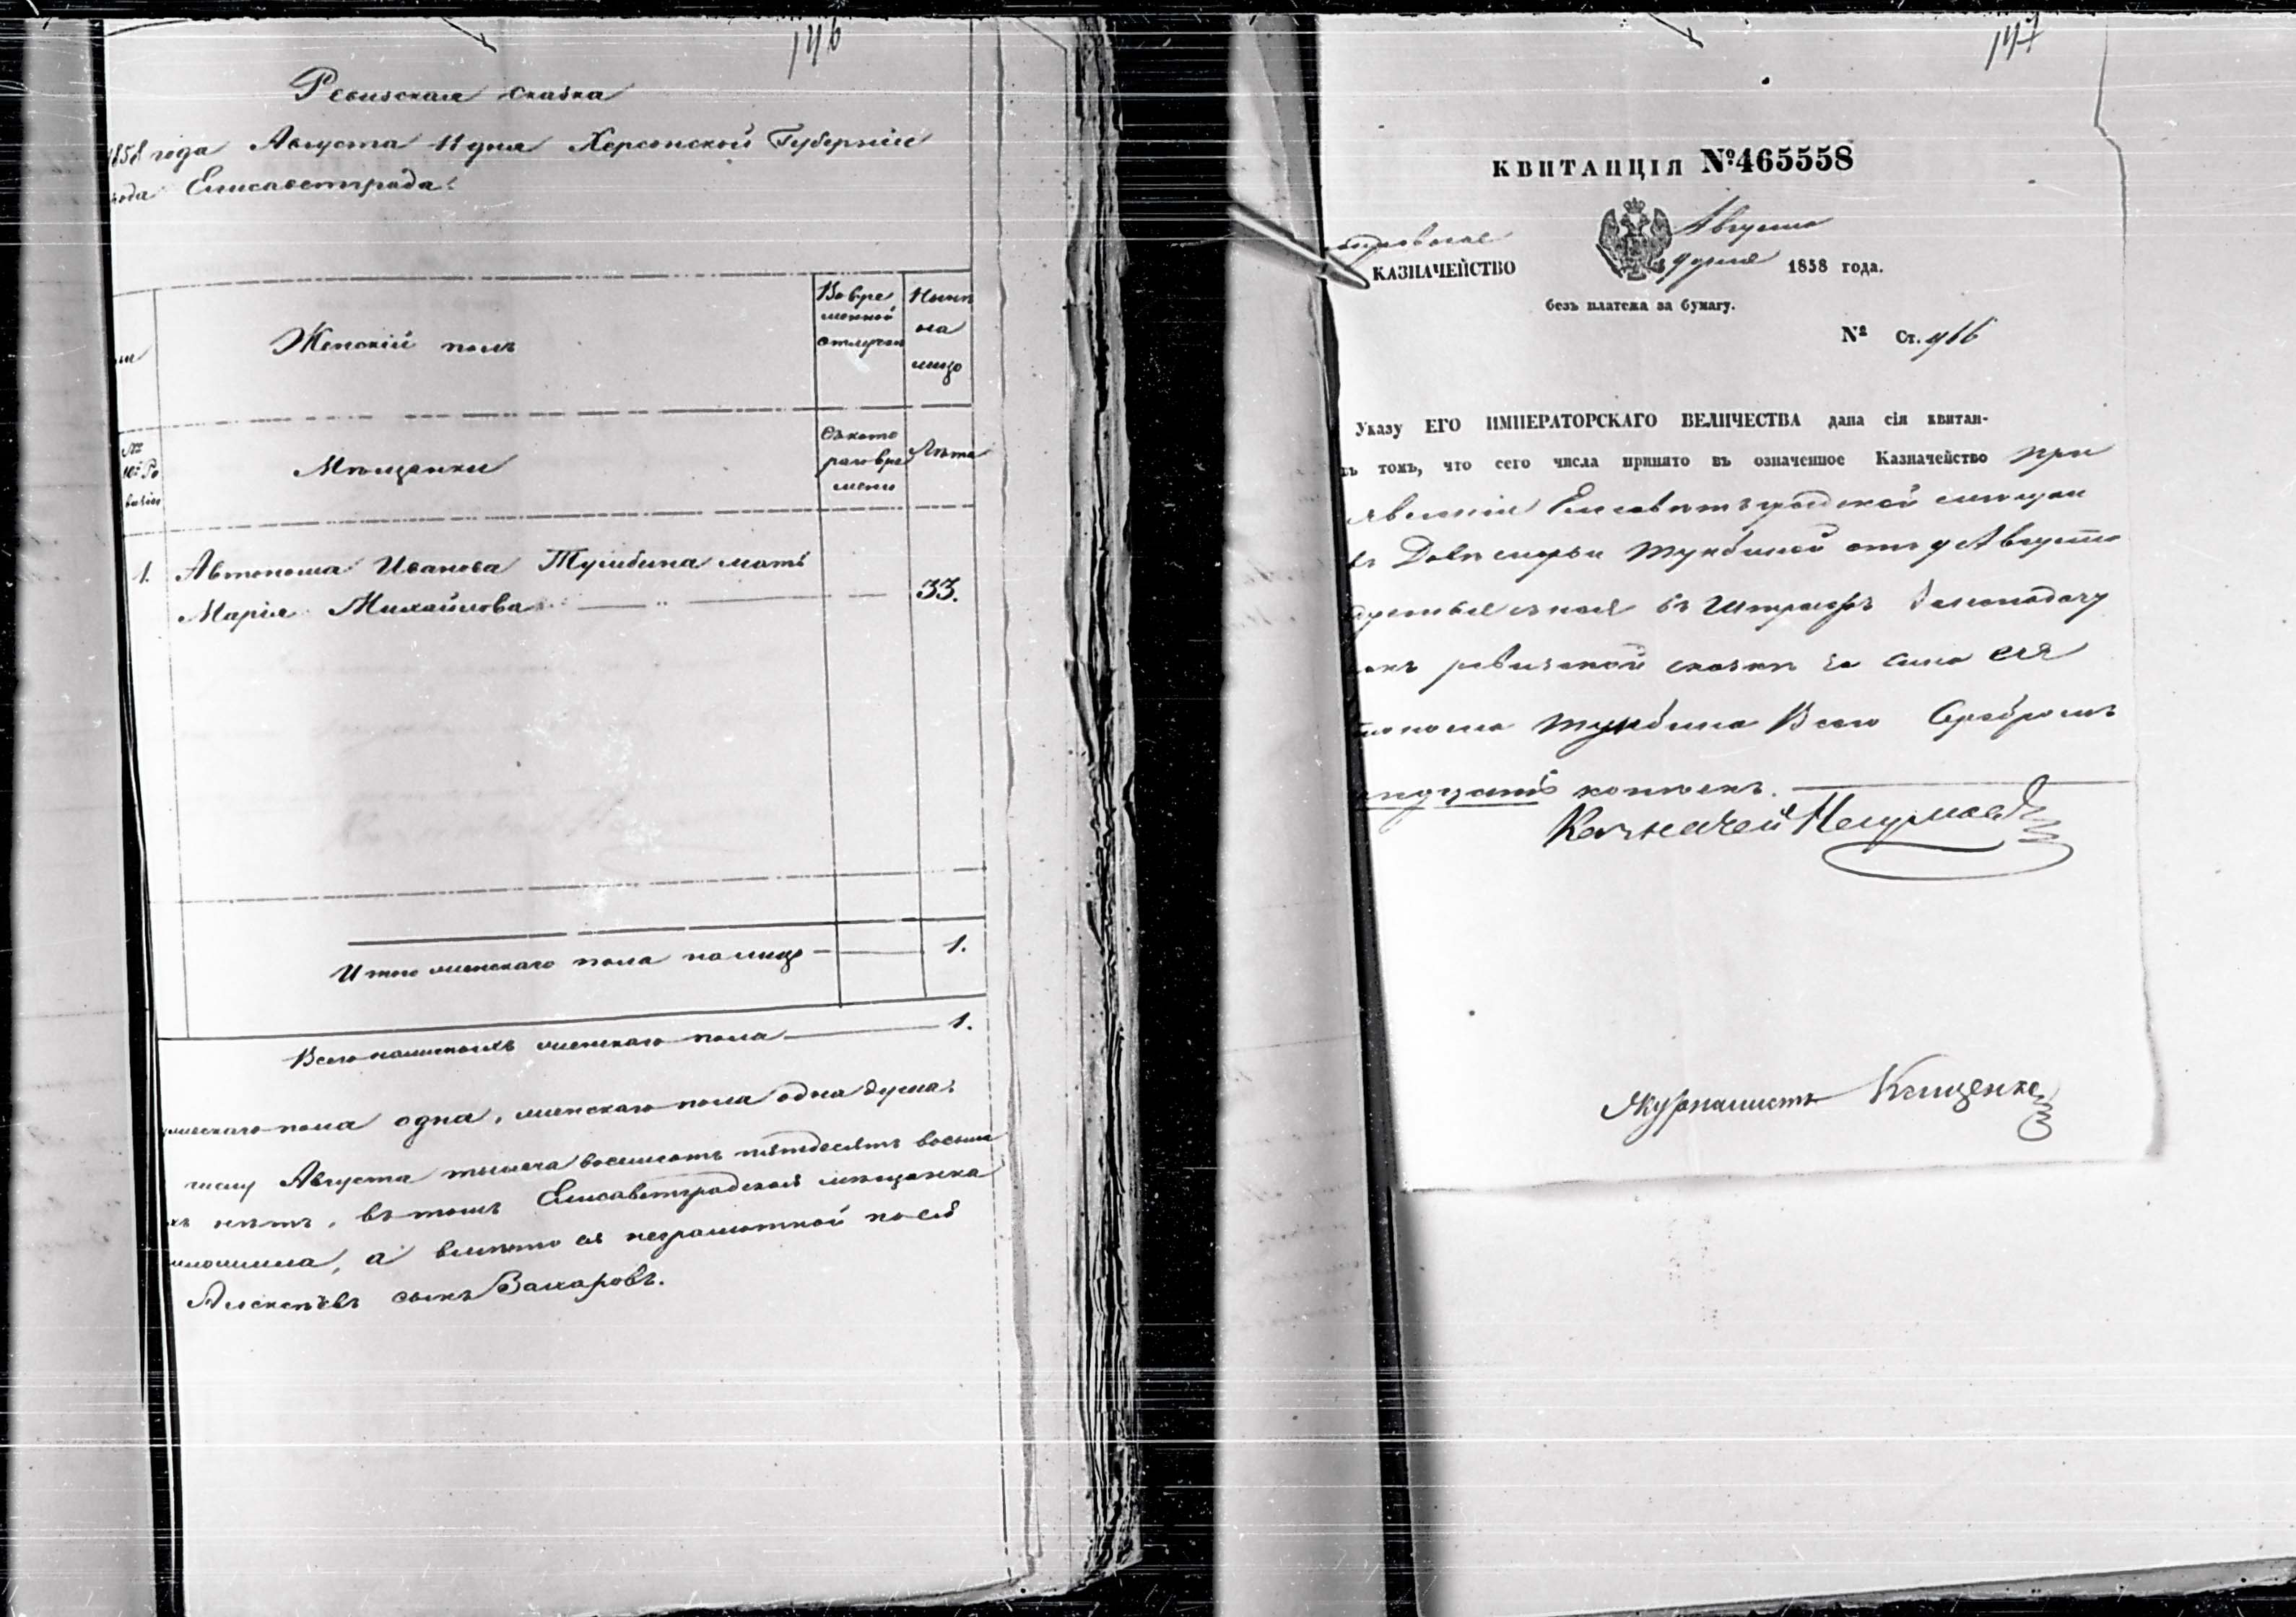 146
Ревизская сказка
1858 года Августа 11 дня Херсонской Губерніи
рода Елисаветграда.
Женскій полъ
Во вре
менной
отлучкѣ
Нынѣ
на
лицо
№
10й Ре
визіи
Мѣщанки
Съ кото
раго вре
мени
Лѣта
1. Автонома Иванова Тумбина мать
Марія Михайлова 33.
Итого женскаго пола на лицо 1.
Всего наличныхъ женскаго пола 1.
пола одна, женскаго пола одна душа.
числу Августа тысяча восемьсотъ пятьдесятъ восьма
хъ нѣтъ, въ томъ Елисаветградская мѣщанка
а вмѣсто ея неграмотной по её
Алексѣевъ сынъ Захаровъ.
147
КВИТАНЦІЯ №465558
Августа
КАЗНАЧЕЙСТВО 9 дня 1858 года.
безъ платежа за бумагу.
№ Ст. 966
Указу ЕГО ИМПЕРАТОРСКАГО ВЕЛИЧЕСТВА дана сія квитан-
въ томъ, что сего числа принято въ означенное Казначейство при
явленіи Елисаветъградской мѣщан
Тумбиной отъ 9 Августа
въ Штрафъ
ревизской сказки за сына ея
тонома Тумбина Всего Серебромъ
надцать копѣекъ.
Казначей
Журналистъ Кащенко